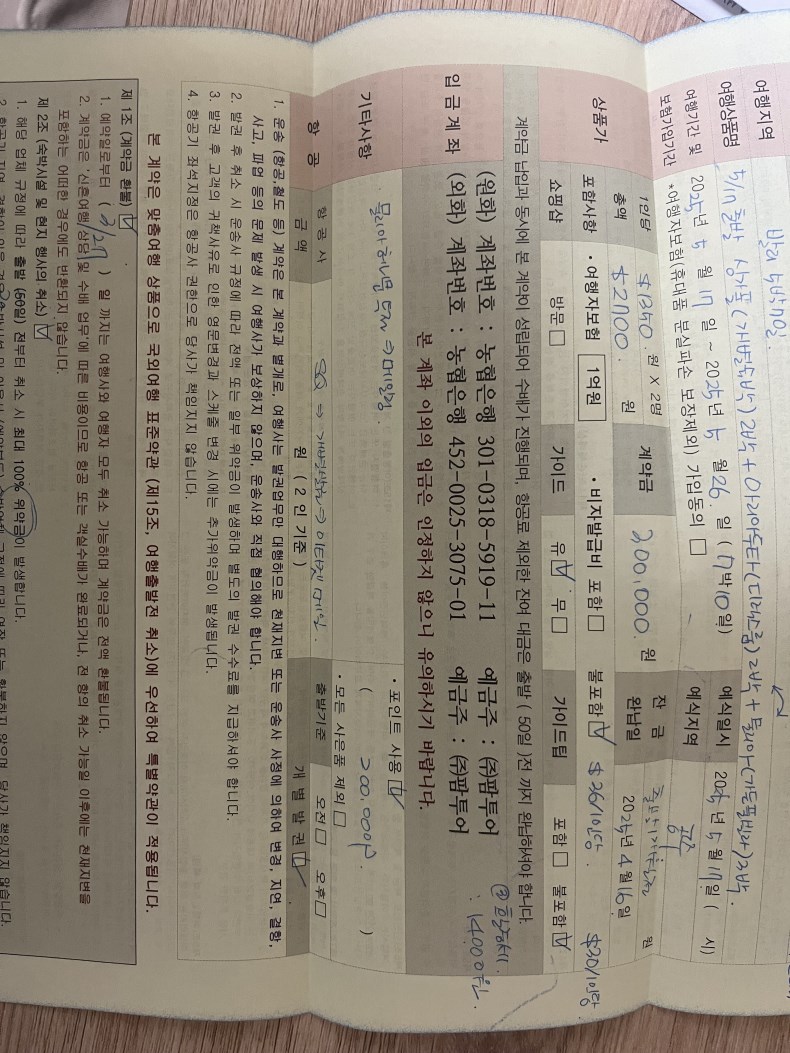 여행지역 발리 5박7일
여행상품명 5/17 출발 상가풀(가든풀빌라) 2박 + 아리아수타(디럭스룸) 2박 + 물리아(가든풀빌라) 2박.
여행기간 및 보험가입기간 2025년 5월 17일 ~ 2025년 5월 26일 (7박10일)
*여행자보험(휴대폰 분실파손 보장제외) 가입동의 □
예식일시 2025년 5월 17일 ( 시)
예식지역
상품가
1인당 $1350. 원 X 2명
총액 $2700. 원
계약금 200,000. 원
잔금 원
완납일 2025년 4월 16일
포함사항 • 여행자보험 1억원 • 비자발급비 포함 □ 불포함 ☑ $36/인당. $30/인당
쇼핑샵 방문 □
가이드 유 ☑ 무 □
가이드팁 포함 □ 불포함 ☑
계약금 납입과 동시에 본 계약이 성립되어 수배가 진행되며, 항공료 제외한 잔여 대금은 출발 ( 50일 )전 까지 완납하셔야 합니다.
: 14000원.
입금계좌
(원화) 계좌번호 : 농협은행 301-0318-5919-11 예금주 : ㈜팜투어
(외화) 계좌번호 : 농협은행 452-0025-3075-01 예금주 : ㈜팜투어
본 계좌 이외의 입금은 인정하지 않으니 유의하시기 바랍니다.
기타사항
물리아 허니문 특전 ⇒ 메일링.
• 포인트 사용 ☑
( 200,000P. )
• 모든 사은품 제외 □
항 공
항 공 사 SQ ⇒ 개별발권 ⇒ 이티켓 메일.
출발기준 오전 □ 오후 □
금 액 원 ( 2인 기준 )
개 별 발 권 ☑
1. 운송 (항공,철도 등) 계약은 본 계약과 별개로, 여행사는 발권업무만 대행하므로 천재지변 또는 운송사 사정에 의하여 변경, 지연, 결항,
사고, 파업 등의 문제 발생 시 여행사가 보상하지 않으며, 운송사와 직접 협의해야 합니다.
2. 발권 후 취소 시 운송사 규정에 따라 전액 또는 일부 위약금이 발생하며 별도의 발권 수수료를 지급하셔야 합니다.
3. 발권 후 고객의 귀책사유로 인한 영문변경과 스케줄 변경 시에는 추가위약금이 발생됩니다.
4. 항공기 좌석지정은 항공사 권한으로 당사가 책임지지 않습니다.
본 계약은 맞춤여행 상품으로 국외여행 표준약관 (제15조, 여행출발전 취소)에 우선하여 특별약관이 적용됩니다.
제 1조 (계약금 환불) ☑
1. 예약일로부터 ( 2/27 ) 일 까지는 여행사와 여행자 모두 취소 가능하며 계약금은 전액 환불됩니다.
2. 계약금은 '신혼여행 상담 및 수배 업무'에 따른 비용이므로 항공 또는 객실수배가 완료되거나, 전 항의 취소 가능일 이후에는 천재지변을
포함하는 어떠한 경우에도 반환되지 않습니다.
제 2조 (숙박시설 및 현지 행사의 취소) ☑
1. 해당 업체 규정에 따라 출발 (60일) 전부터 취소 시 최대 100% 위약금이 발생합니다.